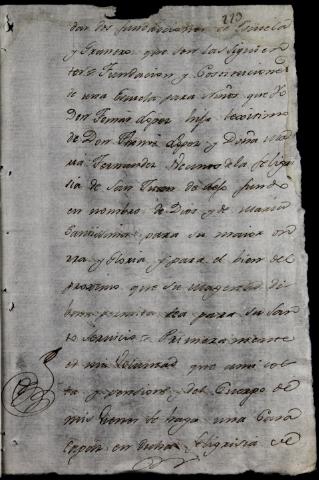 223
das dos fundaciones de Escuela
y Granero que son las siguien
tes = Fundacion y Costituciones
de una Escuela para Niños que Yo
Don Tomas Lopez hijo lexitimo
de Don Thomas Lopez y Doña Ma
ria Fernandez Vecinos de la feligre
sia de San Juan de fundo
en nombre de Dios y de Maria
Santissima para su maior on
rra y Gloria y para el bien del
proximo que su magestad di
bina permita sea para su San
to servicio = Primeramente
es mi Voluntad que a mi cos
ta y pensione y del Cuerpo de
mis vienes se haga una Casa
en dicha feligrisia de